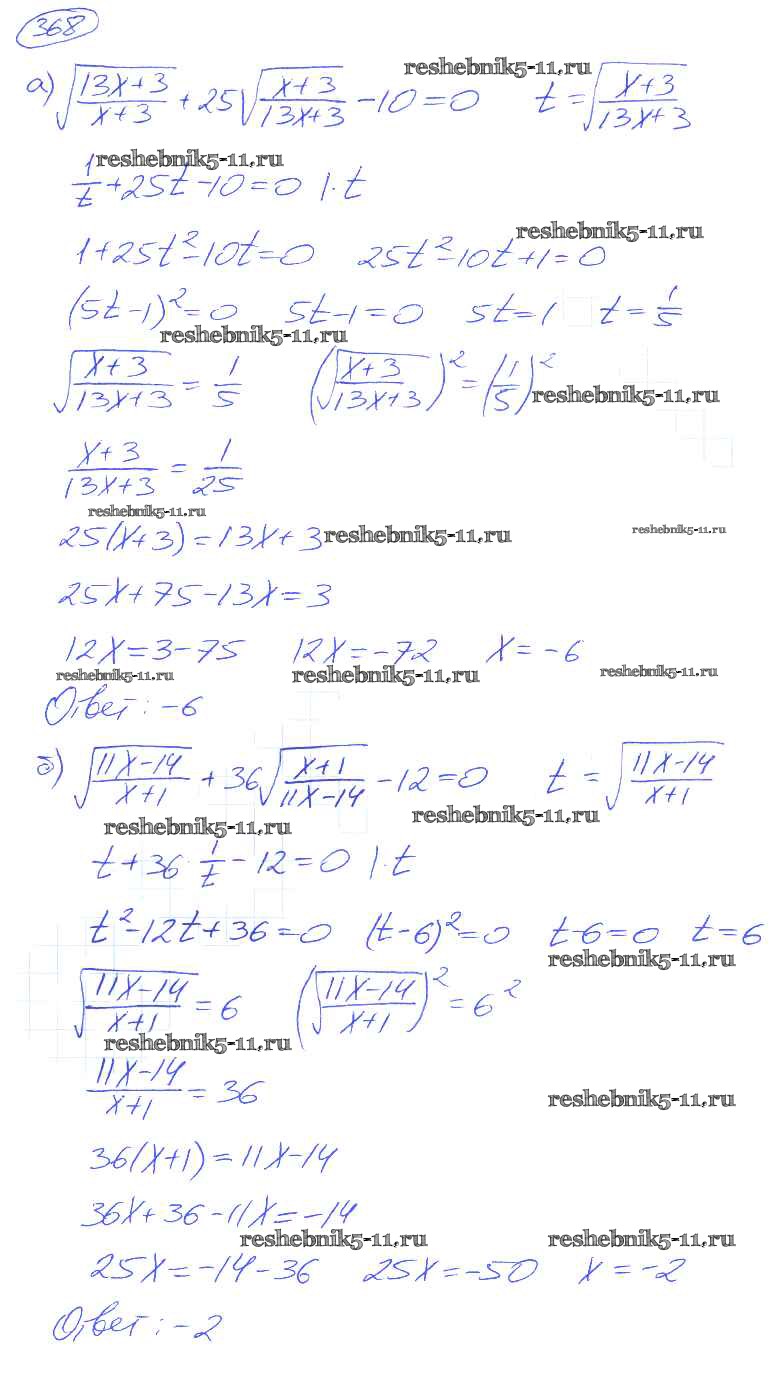 368
а) √((13x+3)/(x+3)) + 25√((x+3)/(13x+3)) - 10 = 0   t = √((x+3)/(13x+3))
reshebnik5-11.ru
reshebnik5-11.ru
1/t + 25t - 10 = 0 |·t
reshebnik5-11.ru
1 + 25t² - 10t = 0   25t² - 10t + 1 = 0
(5t - 1)² = 0   5t - 1 = 0   5t = 1   t = 1/5
reshebnik5-11.ru
√((x+3)/(13x+3)) = 1/5   (√((x+3)/(13x+3)))² = (1/5)²
reshebnik5-11.ru
(x+3)/(13x+3) = 1/25
reshebnik5-11.ru
25(x+3) = 13x + 3
reshebnik5-11.ru reshebnik5-11.ru
25x + 75 - 13x = 3
12x = 3 - 75   12x = -72   x = -6
reshebnik5-11.ru reshebnik5-11.ru reshebnik5-11.ru
Ответ: -6
б) √((11x-14)/(x+1)) + 36√((x+1)/(11x-14)) - 12 = 0   t = √((11x-14)/(x+1))
reshebnik5-11.ru reshebnik5-11.ru
t + 36·1/t - 12 = 0 |·t
t² - 12t + 36 = 0   (t - 6)² = 0   t - 6 = 0   t = 6
reshebnik5-11.ru
√((11x-14)/(x+1)) = 6   (√((11x-14)/(x+1)))² = 6²
reshebnik5-11.ru
(11x-14)/(x+1) = 36
reshebnik5-11.ru
36(x+1) = 11x - 14
36x + 36 - 11x = -14
reshebnik5-11.ru reshebnik5-11.ru
25x = -14 - 36   25x = -50   x = -2
Ответ: -2